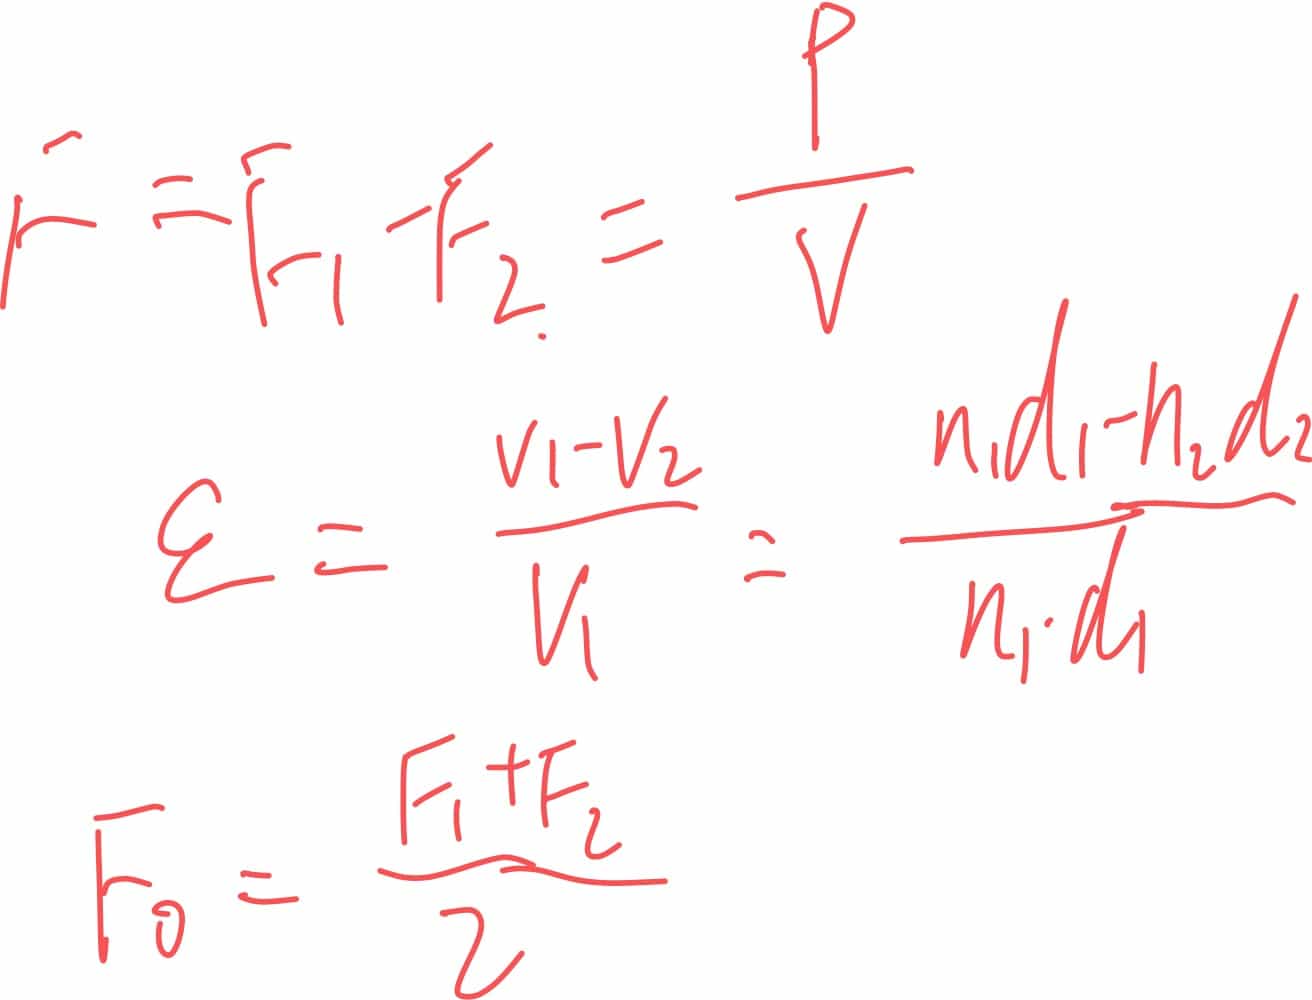 F = F₁ - F₂ = P/V
ε = (V₁ - V₂)/V₁ = (n₁d₁ - n₂d₂)/(n₁·d₁)
F₀ = (F₁ + F₂)/2